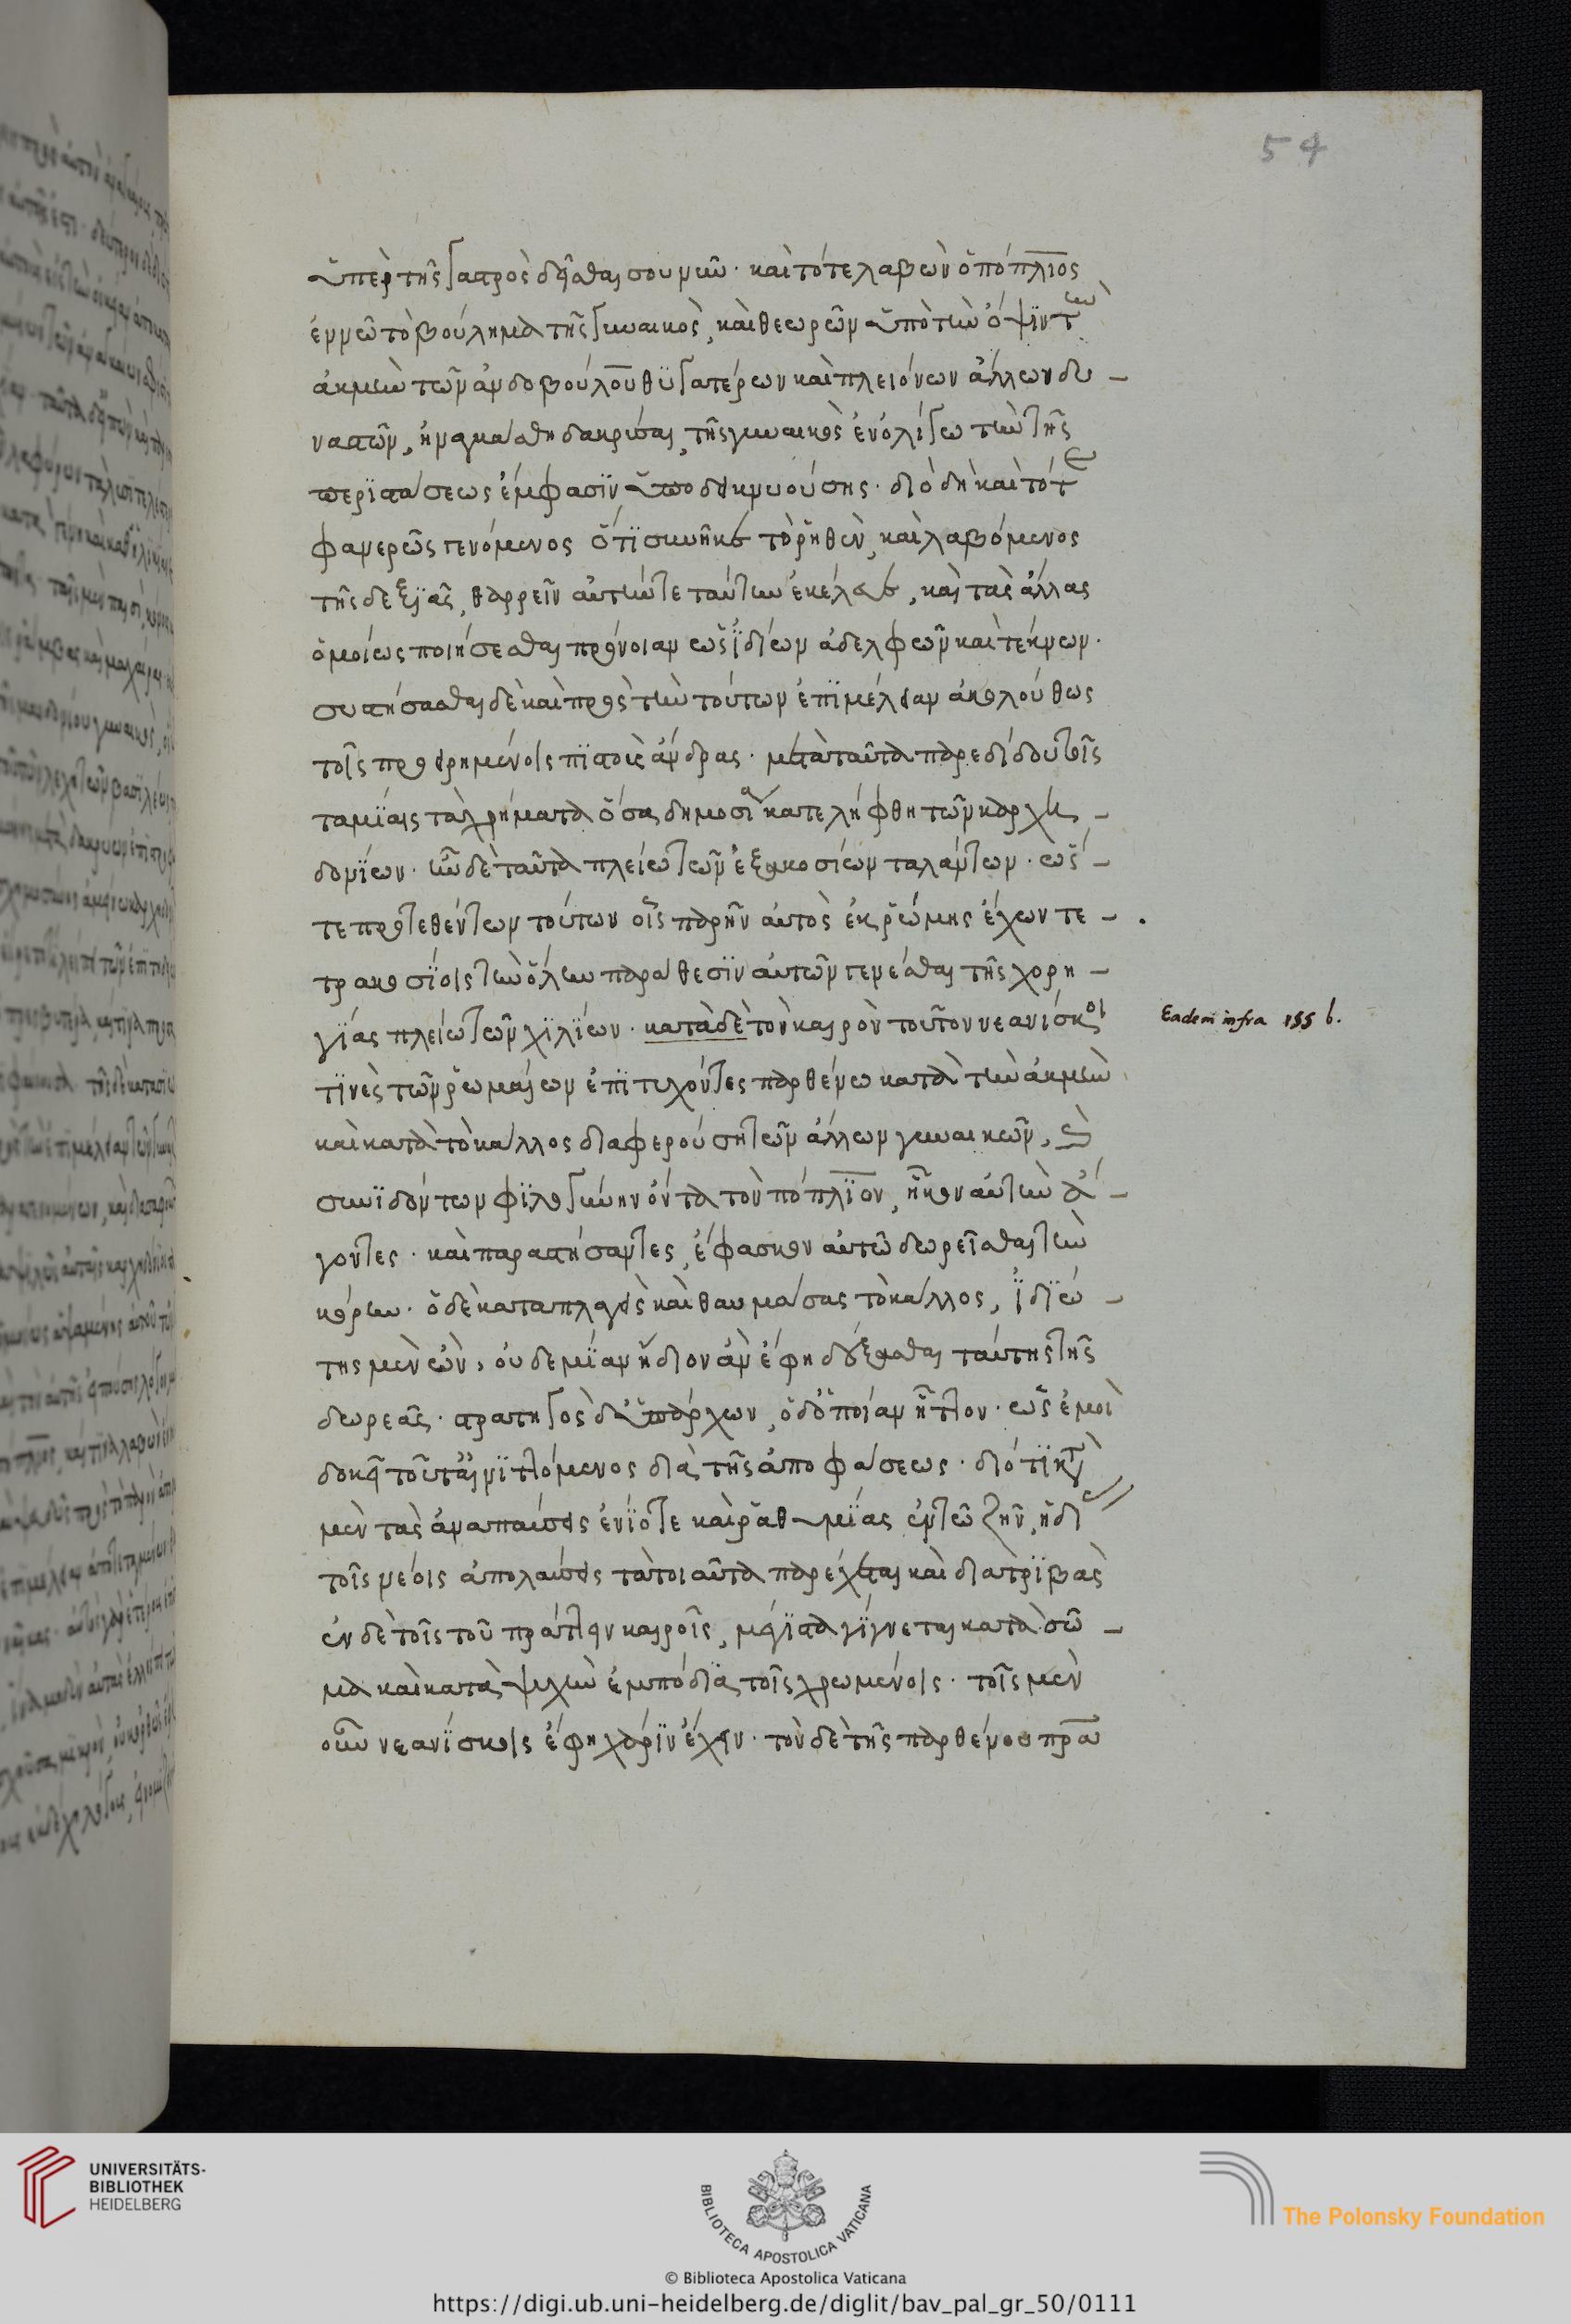 54
ὑπὲρ τῆς γαστρὸς δεῖσθαι σου νῦν· καὶ τότε λαβὼν ὁ πόπλιος
ἐν νῶ τὸ βούλημα τῆς γυναικὸς, καὶ θεωρῶν ὑπὸ τὴν ὄψϊν τὴν
ἀκμὴν τῶν ἀνδοβούλου θϋγατέρων καὶ πλειόνων ἄλλων δυ –
ναστῶν, ἠναγκάσθη δακρύσαι, τῆς γυναικὸς ἐν ὀλίγω τὴν τῆς
περϊστάσεως ἔμφασϊν ὑποδεικνυούσης· διὸ δὴ καὶ τότε
φανερῶς γενόμενος ὅτϊ συνῆκε τὸ ῥηθὲν, καὶ λαβόμενος
τῆς δεξϊᾶς, θαρρεῖν αὐτήν τε ταύτην ἐκέλευε, καὶ τὰς ἄλλας
ὁμοίως ποιήσεσθαι πρόνοιαν ὡς ἰδίων ἀδελφῶν καὶ τέκνων·
συστήσασθαι δὲ καὶ πρὸς τὴν τούτων ἐπϊμέλειαν ἀκολούθως
τοῖς προειρημένοις πϊστοὺς ἄνδρας· μετὰ ταῦτα παρεδίδου τοῖς
ταμϊαις τὰ χρήματα ὅσα δημοσία κατελήφθη τῶν καρχη –
δονϊων· ἦν δὲ ταῦτα πλείω τῶν ἑξακοσίων ταλάντων· ὥσ –
τε προστεθέντων τούτων οἷς παρῆν αὐτὸς ἐκ ῥώμης ἔχων τε –
τρακοσϊοις τὴν ὅλην παράθεσϊν αὐτῶν γενέσθαι τῆς χορη –
γϊας πλείω τῶν χϊλϊων· κατὰ δὲ τὸν καιρὸν τοῦτον νεανίσκοι
Eadem infra 155 b.
τϊνὲς τῶν ῥωμαίων ἐπϊτυχόντες παρθένω κατὰ τὴν ἀκμὴν
καὶ κατὰ τὸ κάλλος διαφερούση τῶν ἄλλων γυναικῶν, καὶ
συνϊδόντων φϊλογύνην ὄντα τὸν πόπλϊον, ἧκον αὐτὴν ἄ –
γοντες· καὶ παραστήσαντες, ἔφασκον αὐτῶ δωρεῖσθαι τὴν
κόρην· ὁ δὲ καταπλαγεὶς καὶ θαυμάσας τὸ κάλλος, ἰδϊώ –
της μὲν ὢν, οὐδεμϊαν ἥδιον ἂν ἔφη δέξασθαι ταύτης τῆς
δωρεᾶς· στρατηγὸς δὲ ὑπάρχων, οὐδ' ὁποίαν ἧττον· ὡς ἐμοὶ
δοκεῖ τοῦτ' αἰνϊττόμενος διὰ τῆς ἀποφάσεως· διότϊ κατὰ
μὲν τὰς ἀναπαύσεις ἐνϊοτε καὶ ῥαθυμϊας ἐν τῶ ζῆν, ἡδι
τοῖς νέοις ἀπολαύσεις τὰ τοιαῦτα παρέχεται καὶ διατρϊβὰς
ἐν δὲ τοῖς τοῦ πράττειν καιροῖς, μέγϊστα γϊγνεται κατὰ σῶ –
μα καὶ κατὰ ψυχὴν ἐμπόδϊα τοῖς χρωμένοις· τοῖς μὲν
οὖν νεανϊσκοις ἔφη χάρϊν ἔχειν· τὸν δὲ τῆς παρθένου πρα
UNIVERSITÄTS-
BIBLIOTHEK
HEIDELBERG
BIBLIOTECA APOSTOLICA VATICANA
The Polonsky Foundation
© Biblioteca Apostolica Vaticana
https://digi.ub.uni-heidelberg.de/diglit/bav_pal_gr_50/0111